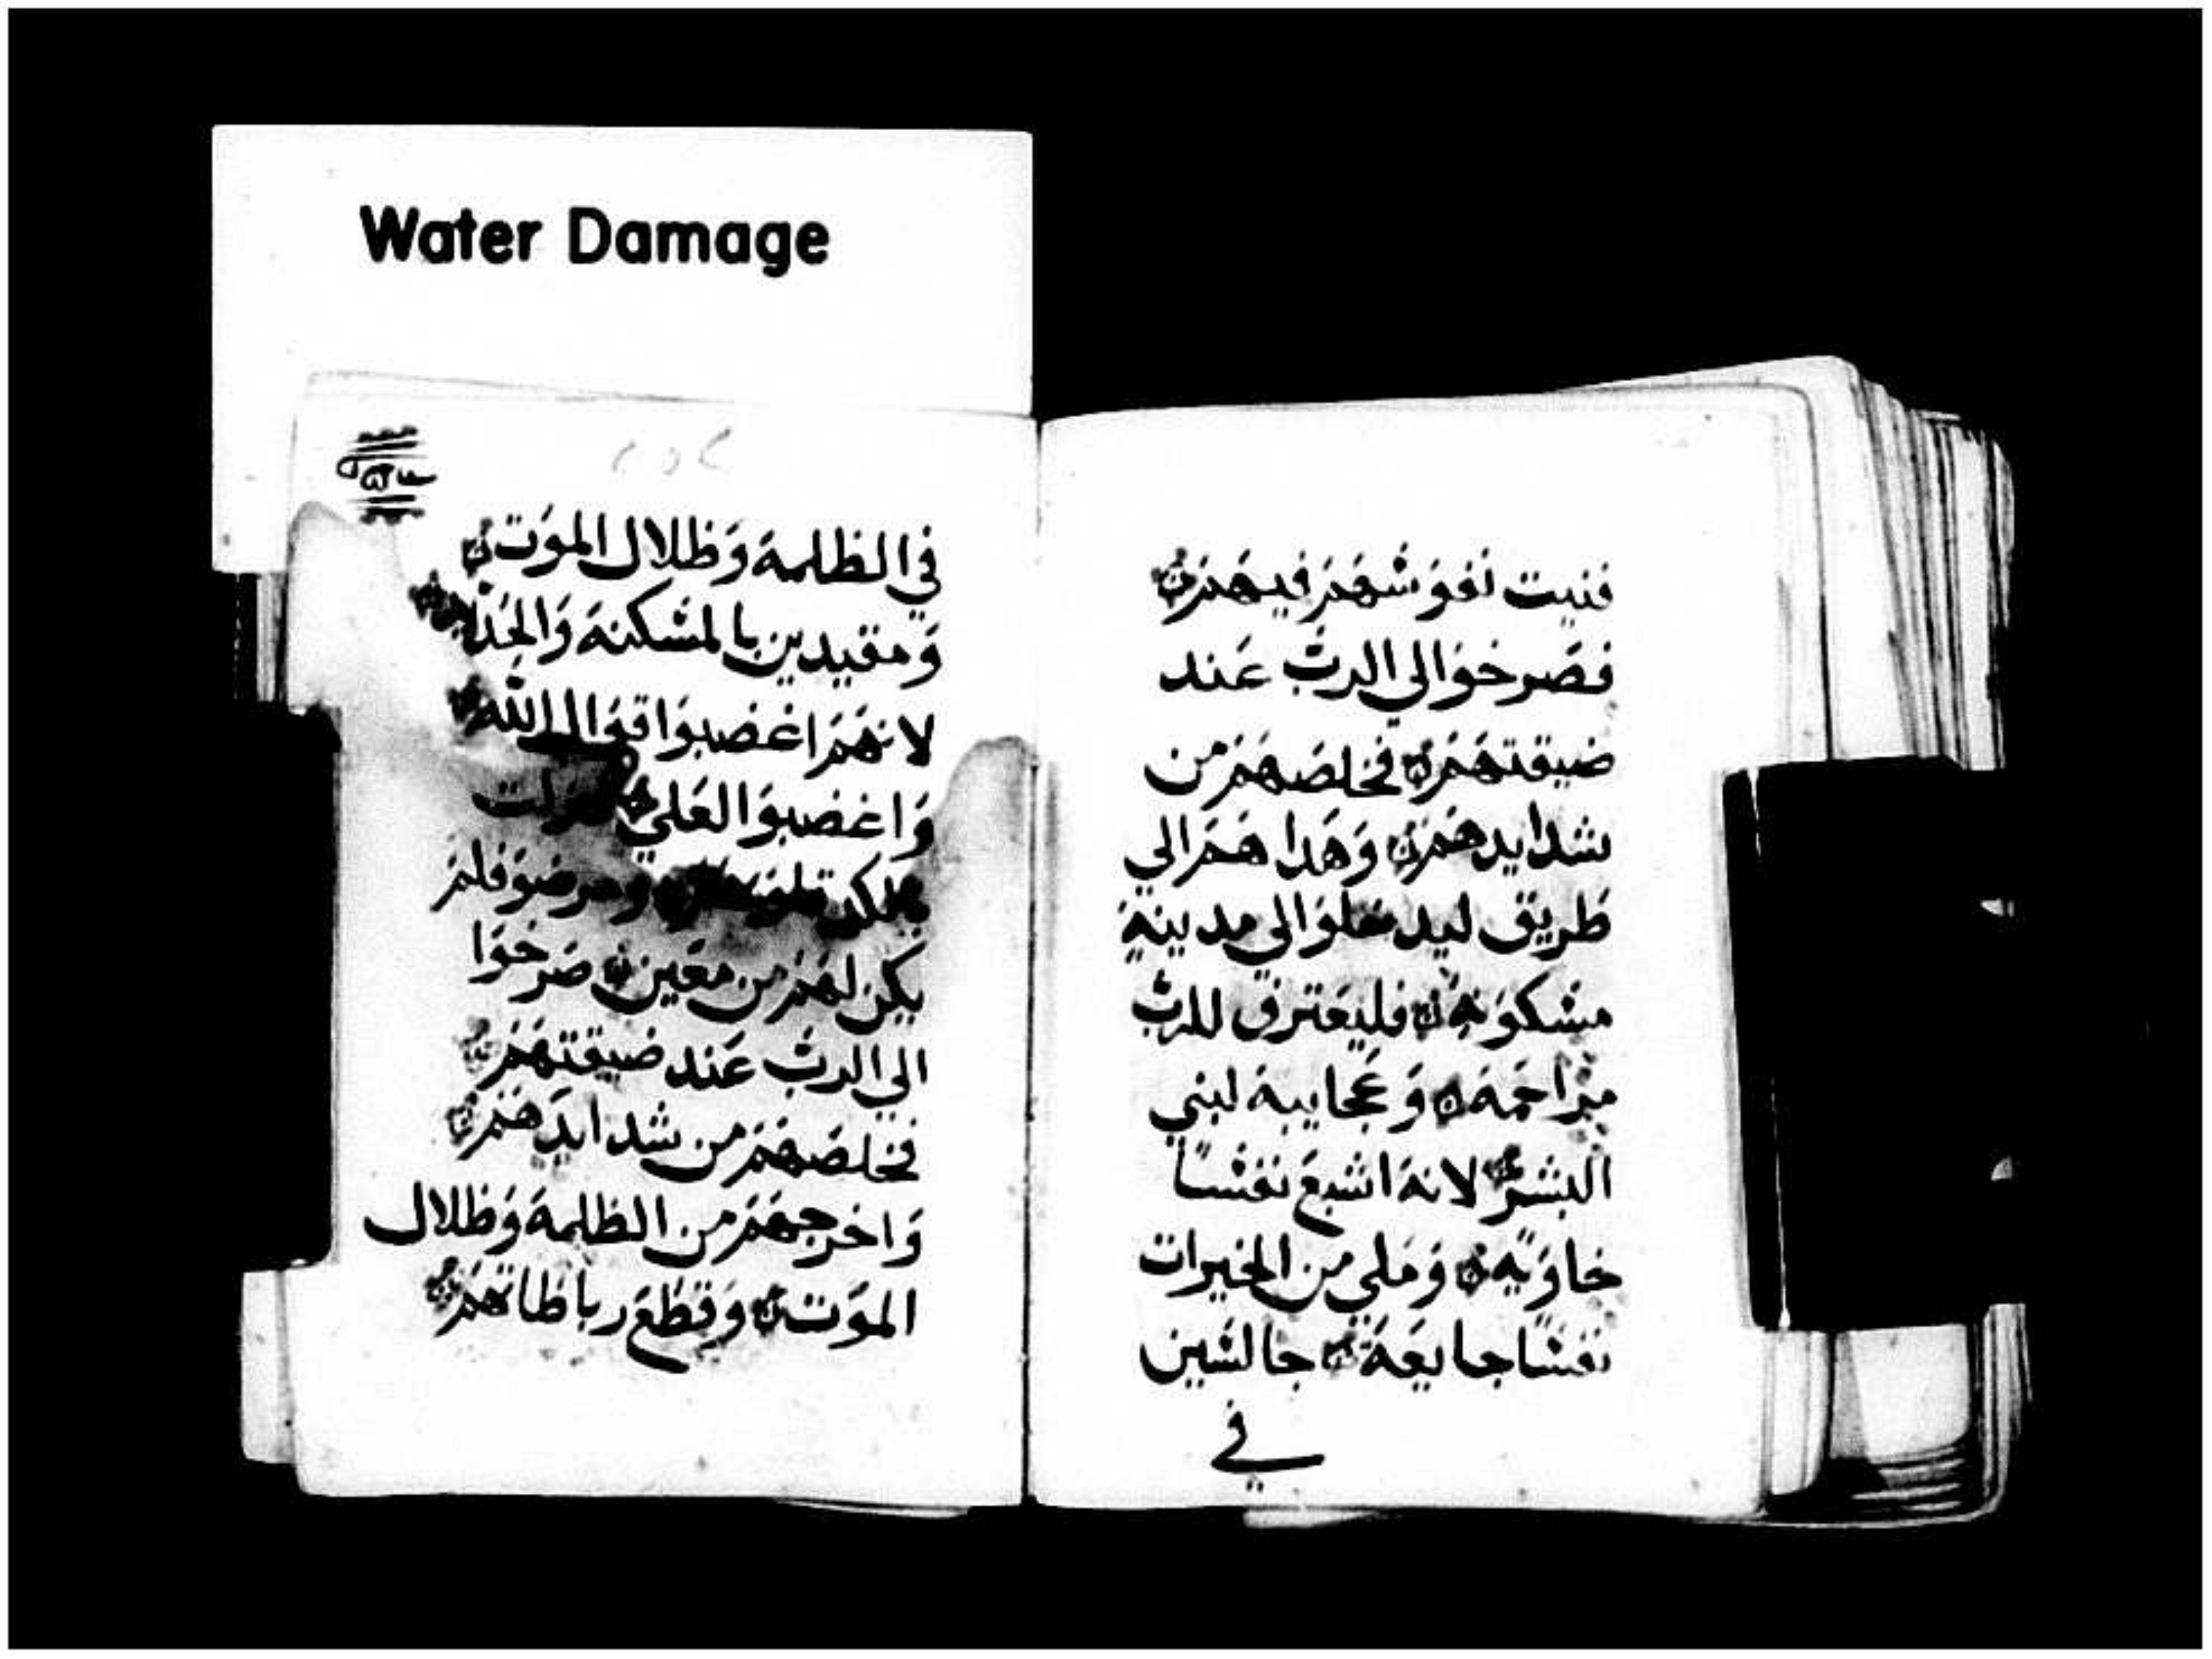 Water Damage
فنيت نفوسهم فيهم
فصرخوا الي الرب عند
ضيقتهم فخلصهم من
شدايدهم وهدا هم الي
طريق ليدخلوا الي مدينة
مسكونة فليعترف للرب
مراحمه وعجايبه لبني
البشر لانه اشبع نفسا
خاويه وملي من الخيرات
نفسا جايعة جالسين
في
٢٥٢
في الظلمة وظلال الموت
ومقيدين بالمسكنة والحديد
لانهم اغضبوا اقوال الله
واغضبوا العلي
قلوبهم ومرضو فلم
يكن لهم من معين صرخوا
الي الرب عند ضيقتهم
فخلصهم من شدايدهم
واخرجهم من الظلمة وظلال
الموت وقطع رباطاتهم